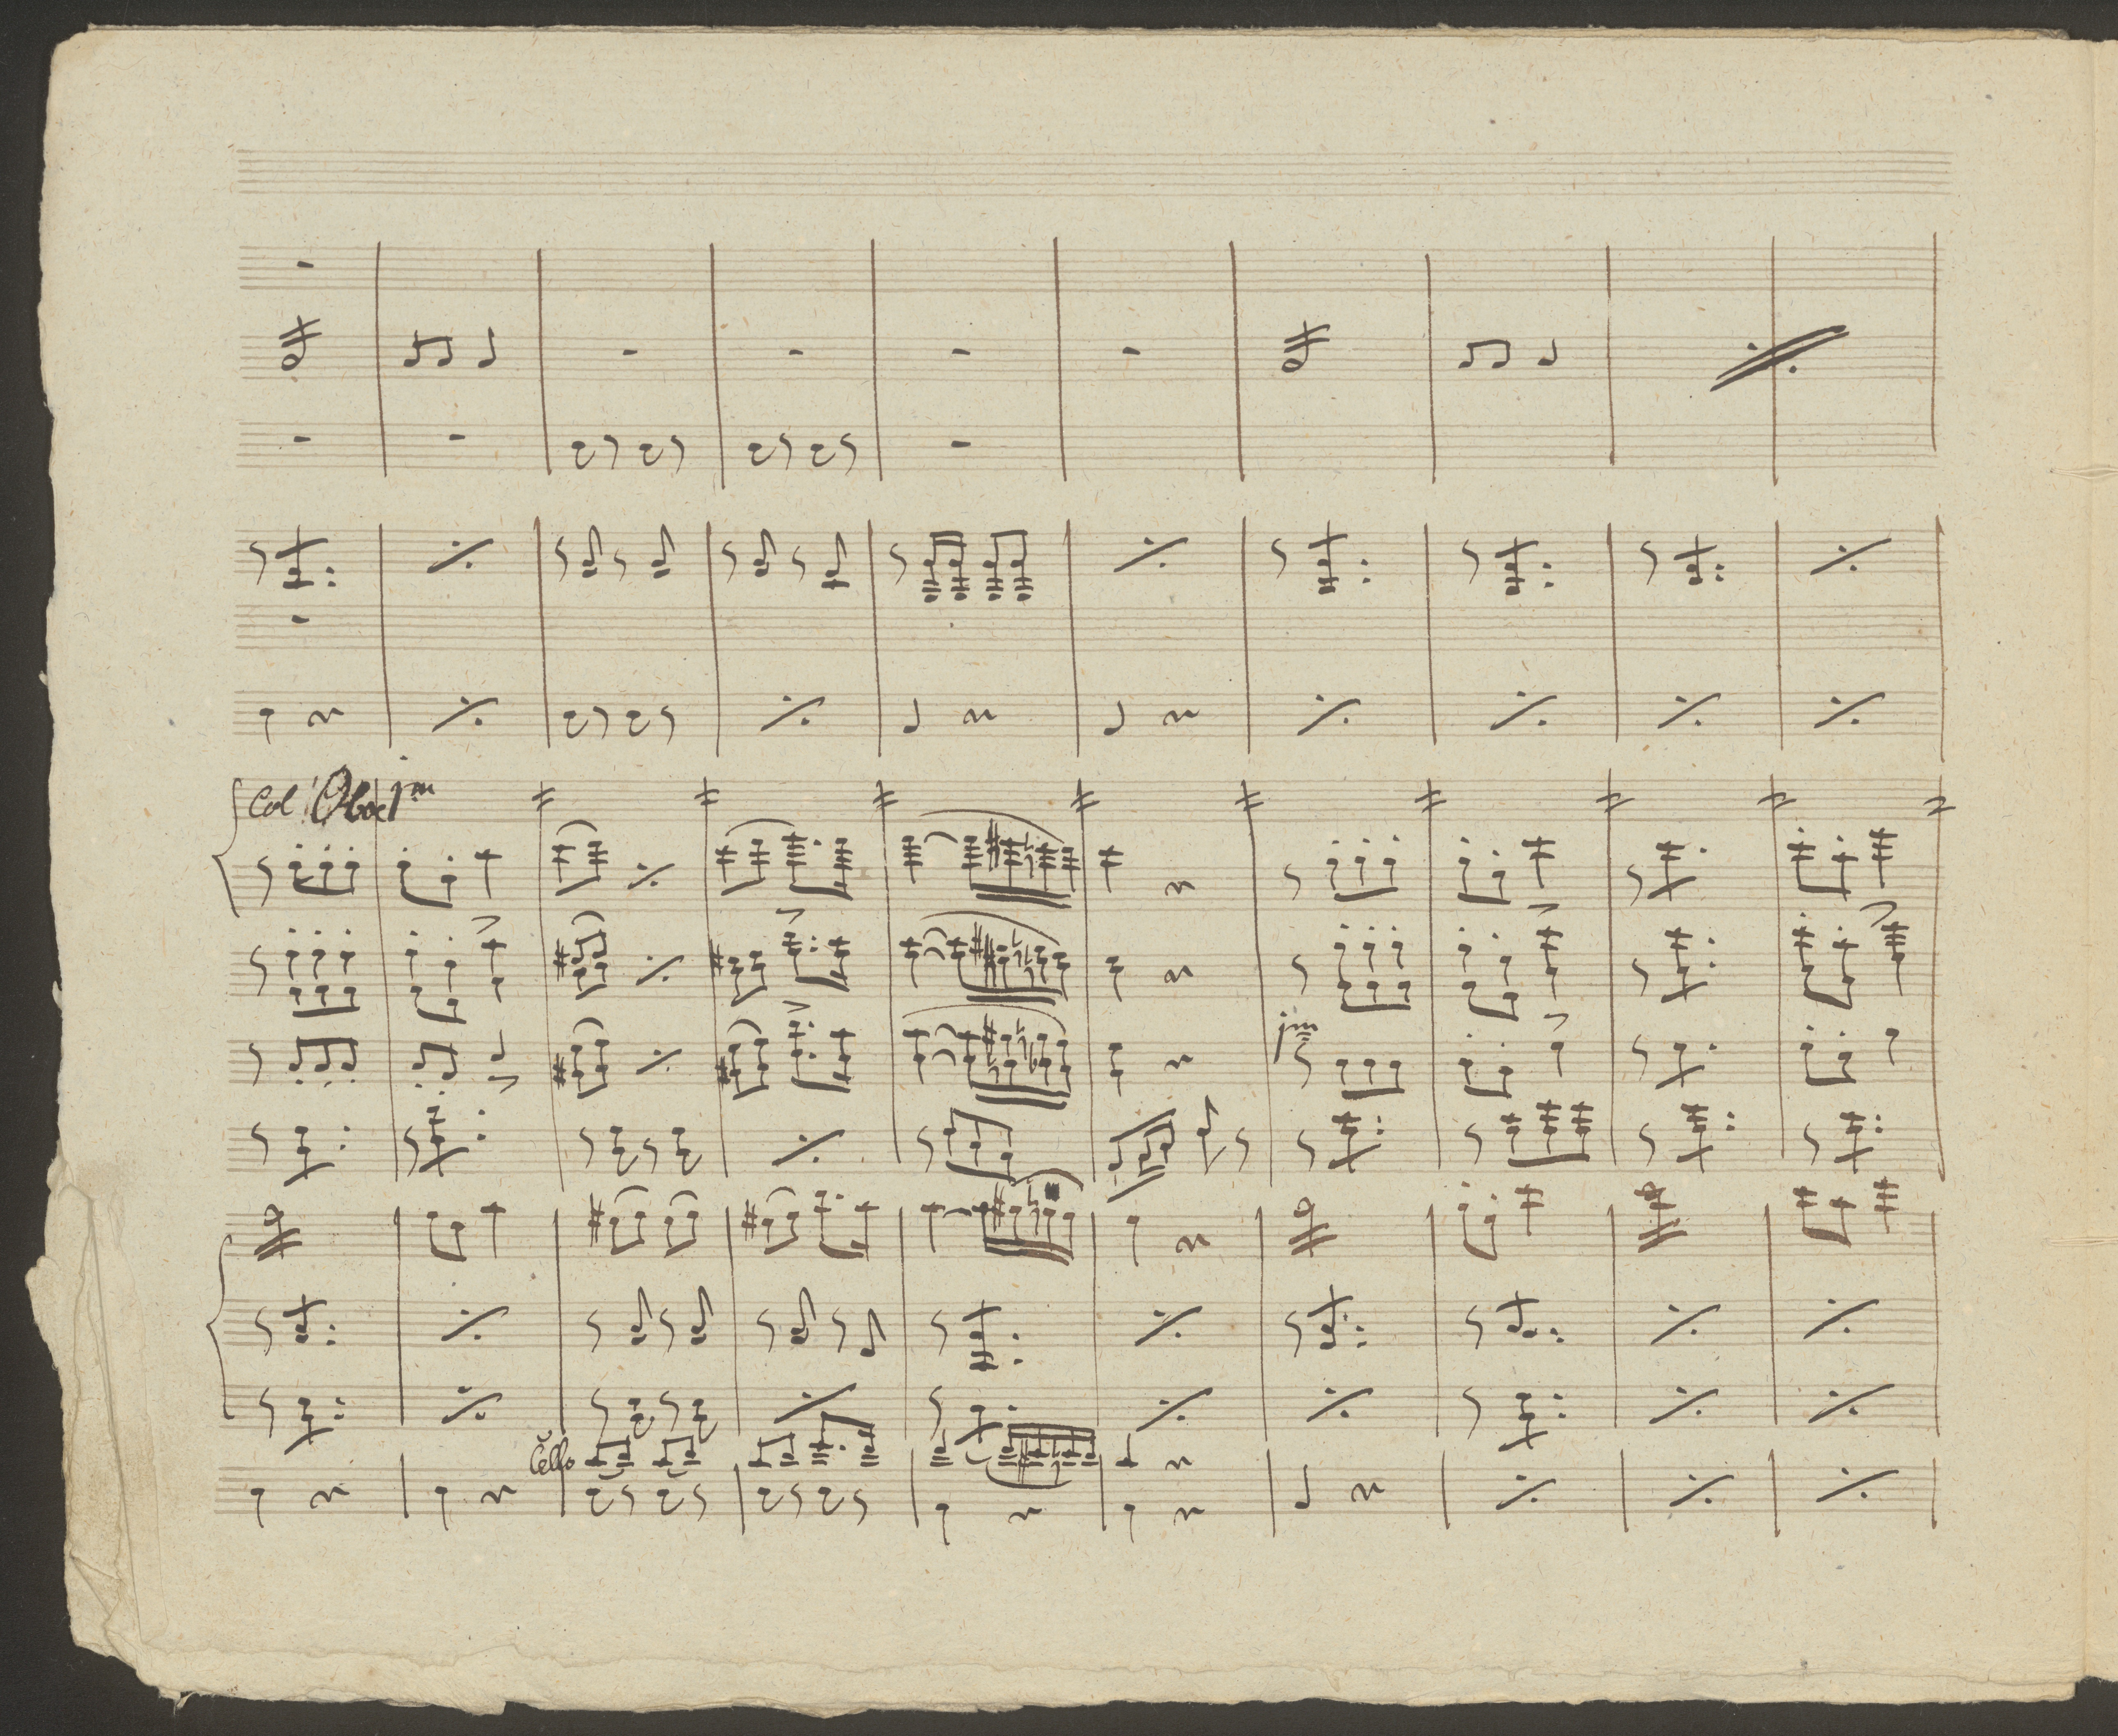 Col' Oboe 1mo
im
Cello